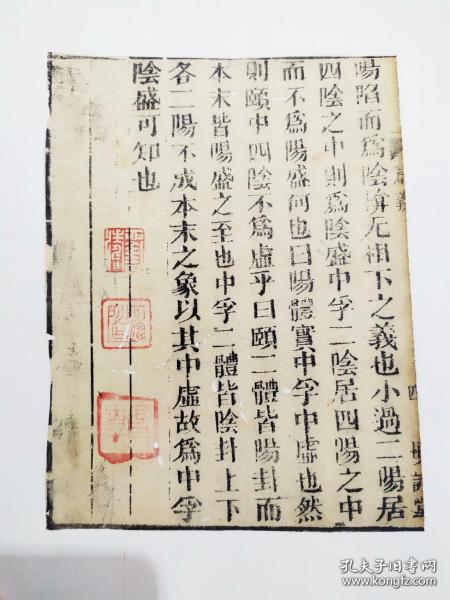 陽陷而爲陰揜无相下之義也小過二陽居
四陰之中則爲陰盛中孚二陰居四陽之中
而不爲陽盛何也曰陽體實中孚中虛也然
則頤中四陰不爲虛乎曰頤二體皆陽卦而
本末皆陽盛之至也中孚二體皆陰卦上下
各二陽不成本末之象以其中虛故爲中孚
陰盛可知也
孔夫子旧书网
www.kongfz.com